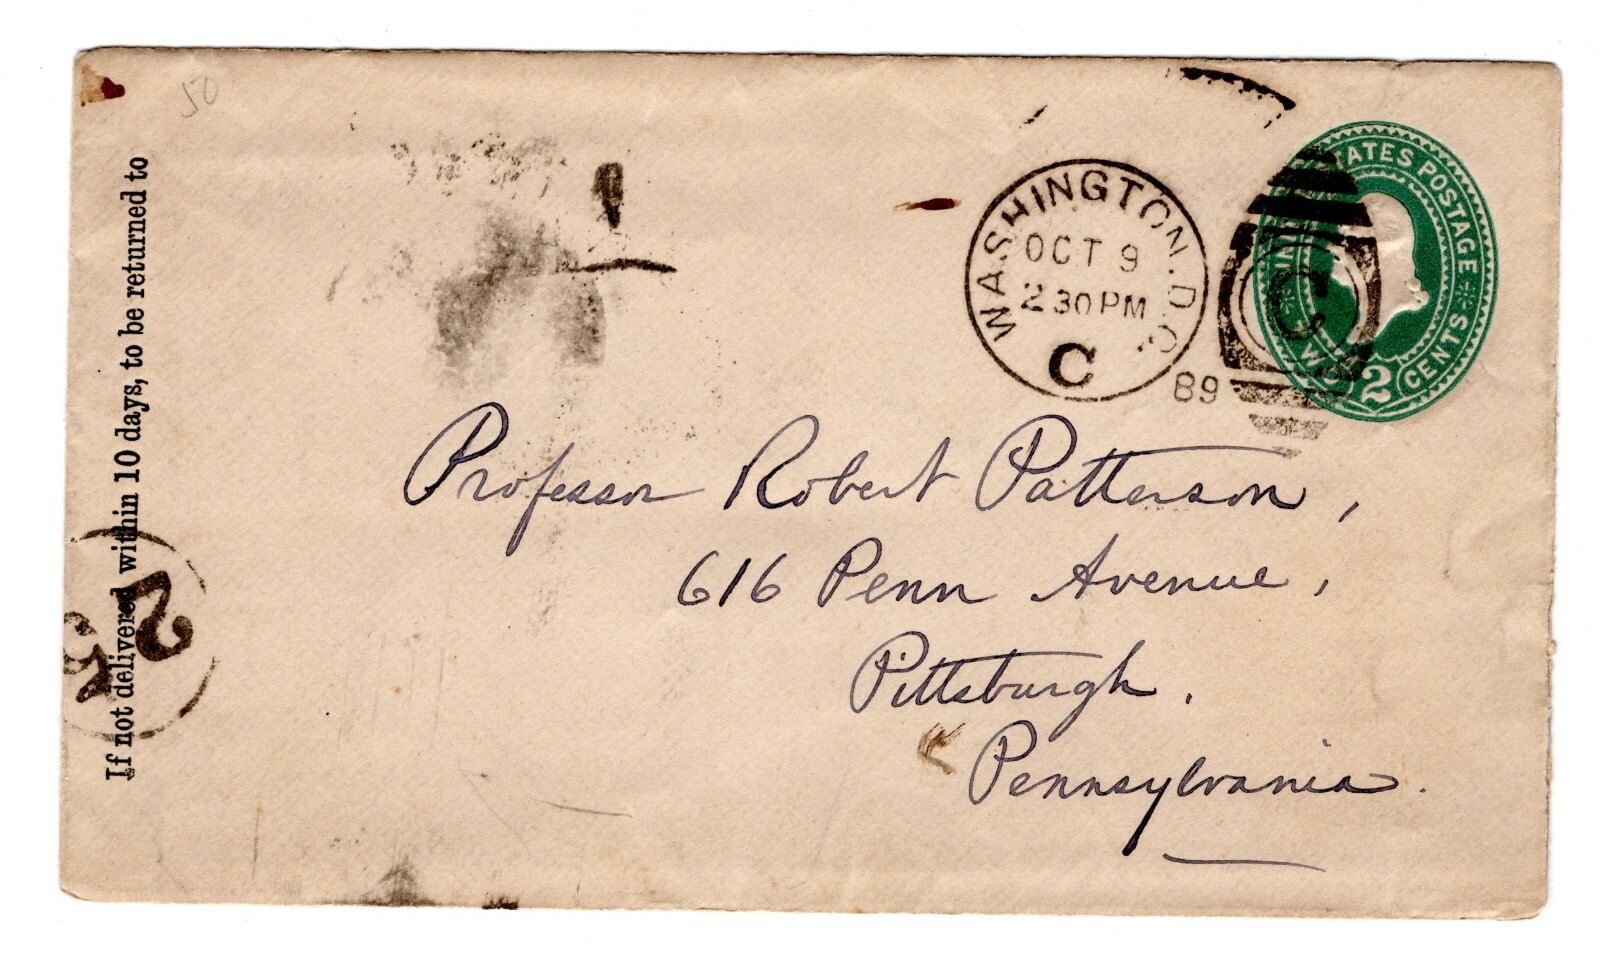 50
If not delivered within 10 days, to be returned to
WASHINGTON. D.C.
OCT 9
2 30 PM
C
89
C
STATES POSTAGE
2 CENTS
2
5
Professor Robert Patterson,
616 Penn Avenue,
Pittsburgh.
Pennsylvania.